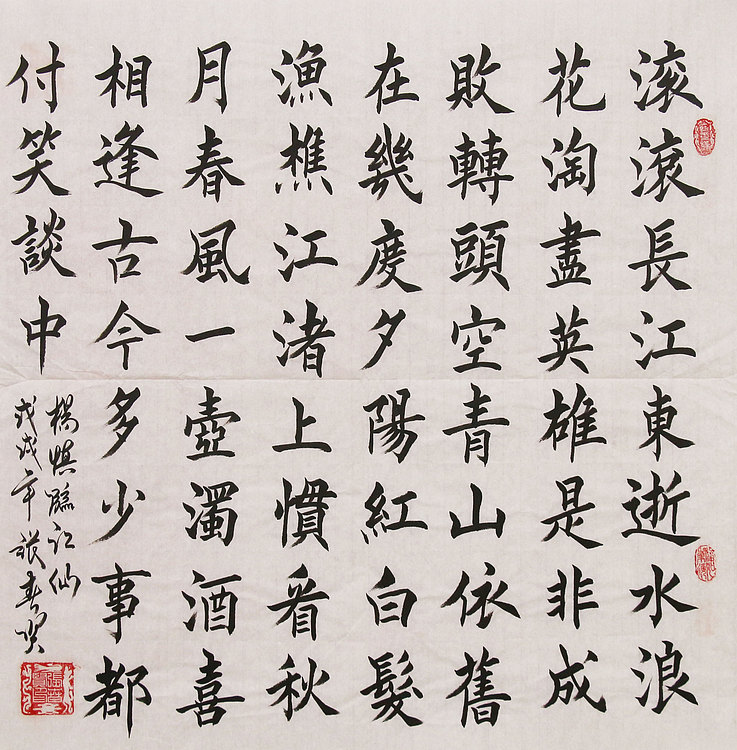 滚滚長江東逝水浪
花淘盡英雄是非成
敗轉頭空青山依舊
在幾度夕陽紅白髮
漁樵江渚上慣看秋
月春風一壺濁酒喜
相逢古今多少事都
付笑談中
楊慎臨江仙
戊戌年張春